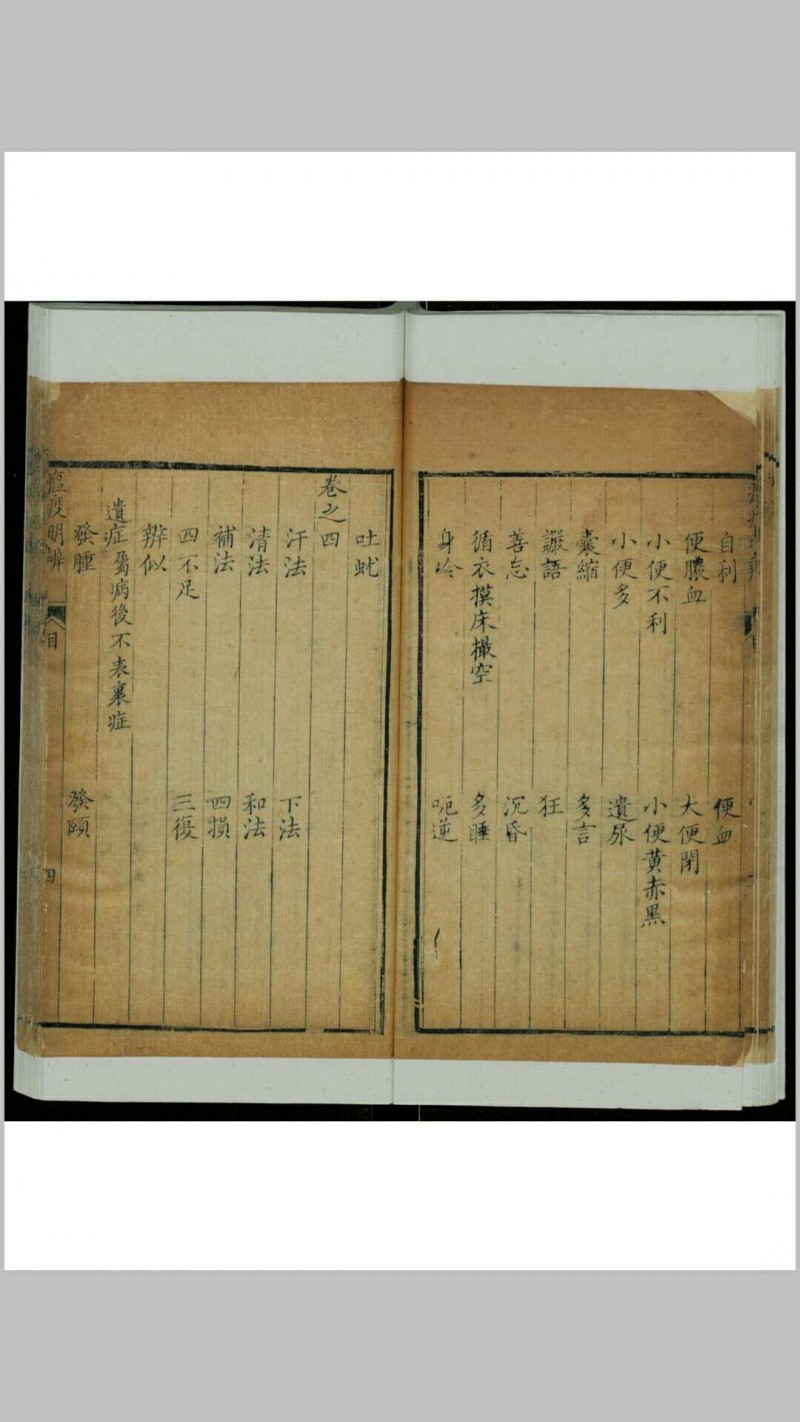 自利　便血
便膿血　大便閉
小便不利　小便黄赤黑
小便多　遺尿
囊縮　多言
譫語　狂
善忘　沉昏
循衣摸床撮空　多睡
身冷　呃逆
吐蚘
卷之四
汗法　下法
清法　和法
補法　四損
四不足　三復
辨似
遺症屬病後不表裏症
發腫　發頤
瘟疫明辨　目　四